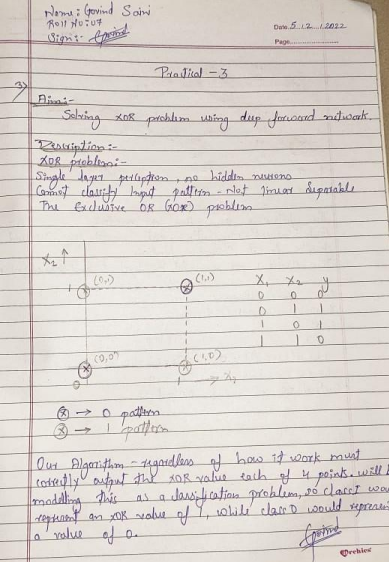 Name: Govind Saini
Roll No: 07
Sign:- Govind
Date 5.12.2022
Page
Practical - 3
3)
Aim:-
Solving XOR problem using deep forward network.
Description:-
XOR problem:-
Single layer perceptron, no hidden neurons
Cannot classify Input pattern - Not linear Separable
The Exclusive OR (XOR) problem
X₂ ↑
1 (0,1) (1,1)
X₁ X₂ y
0 0 0
0 1 1
1 0 1
1 1 0
(0,0) (1,0)
0 1 → X₁
ⓧ → 0 pattern
ⓧ → 1 pattern
Our Algorithm - regardless of how it work must
correctly output the XOR value each of 4 points. will b
modelling this as a classification problem, so class I wou
represent an XOR value of 1, while class 0 would represen
a value of 0.
Govind
Orchies